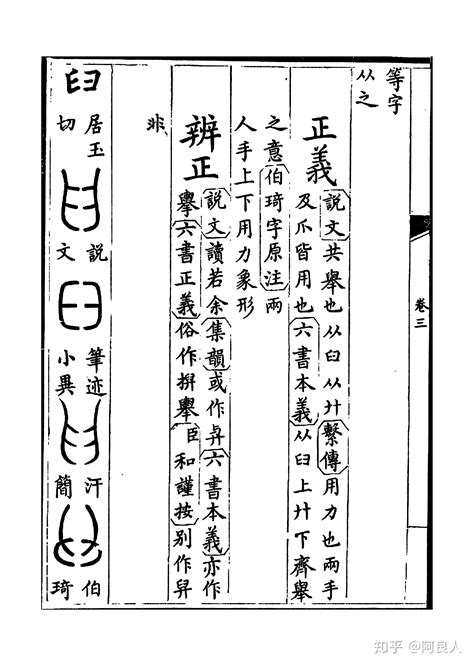 等字
从之
卷三
正義
説文共舉也从臼从廾繫傳用力也兩手
及爪皆用也六書本義从臼上廾下齊舉
之意伯琦字原注兩
人手上下用力象形
辨正
説文讀若余集韻或作六書本義亦作
擧六書正義俗作擧臣和謹按别作
非
𦥑
居玉
切
説
文
筆迹
小異
汗
簡
伯
琦
知乎 @阿良人